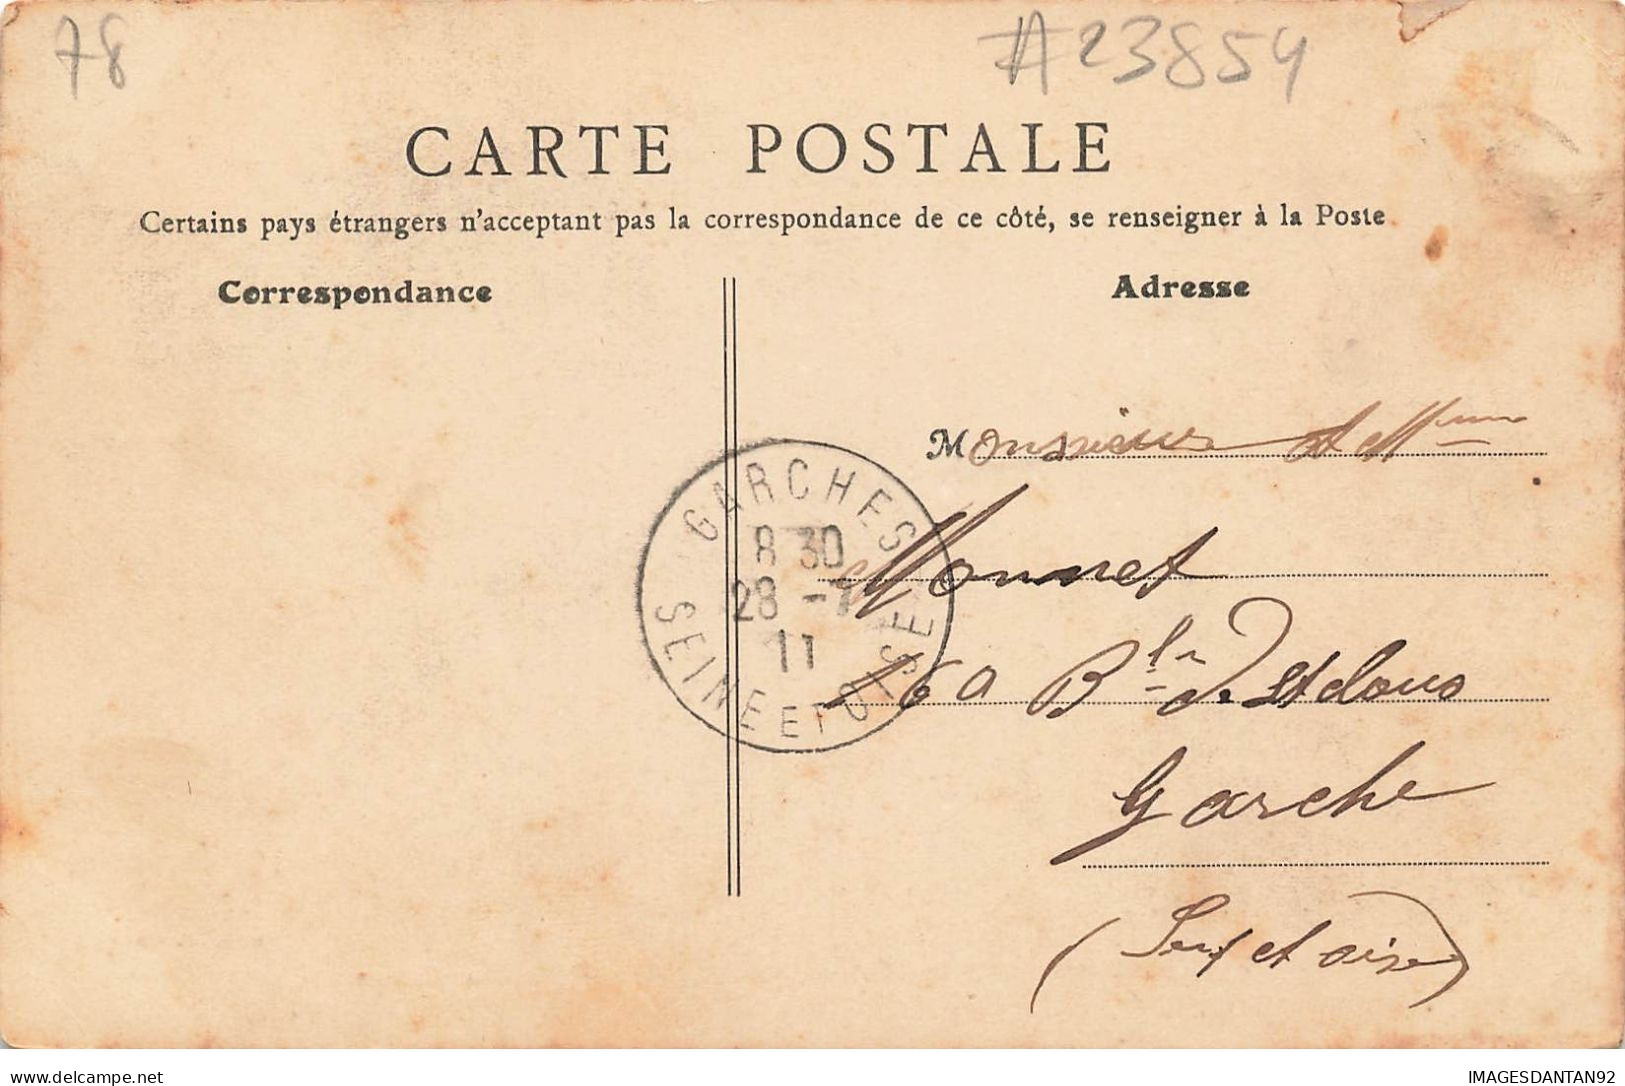 78
A23854
CARTE POSTALE
Certains pays étrangers n'acceptant pas la correspondance de ce côté, se renseigner à la Poste
Correspondance
Adresse
Monsieur et Mme
GARCHES
8 30
28 -
11
SEINE ET OISE
Monnet
160 Bd de St Clous
Garche
(Sein et oise)
delcampe.net
IMAGESDANTAN92